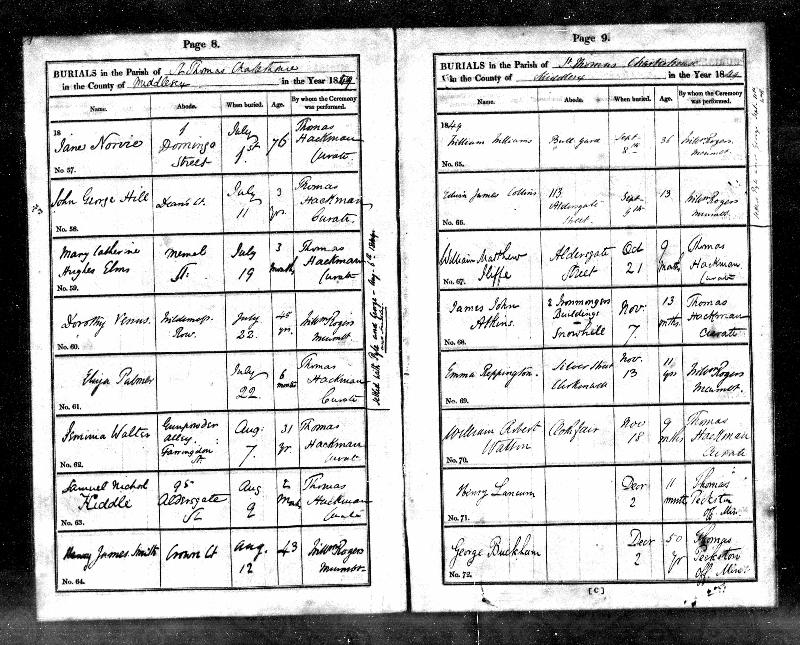 Page 8.
BURIALS in the Parish of St Thomas Charterhouse
in the County of Middlesex in the Year 1849
Name. Abode. When buried. Age. By whom the Ceremony was performed.
18
Jane Norvie
No. 57.
1
Domingo
Street
July
1st
76
Thomas
Hackman
Curate
John George Hill
No. 58.
Deans Ct.
July
11
3
yrs.
Thomas
Hackman
Curate.
Mary Catherine
Hughes Elms
No. 59.
Memel
St.
July
19
3
months
Thomas
Hackman
Curate
Dorothy Venus.
No. 60.
Row.
July
22.
45
yrs.
Willm Rogers
Eliza Palmer
No. 61.
July
22
6
months
Thomas
Hackman
Curate
Jemima Walter
No. 62.
Gunpowder
Alley
Farringdon
St.
Aug:
7.
31
yr.
Thomas
Hackman
Curate
Samuel Nichol
Kiddle
No. 63.
95
Aldersgate
St
Aug
9
2
Month
Thomas
Hackman
Curate
Henry James Smith
No. 64.
Crown Ct
Aug.
12
43
Willm Rogers
Page 9.
BURIALS in the Parish of St Thomas Charterhouse
in the County of Middlesex in the Year 1849
Name. Abode. When buried. Age. By whom the Ceremony was performed.
1849
William Williams
No. 65.
Bull Yard
Sept
8th
36
Willm Rogers
Edwin James Collins
No. 66.
113
Aldersgate
Street.
Sept
9th
13
Willm Rogers
William Matthew
Iliffe
No. 67.
Aldersgate
Street
Oct
21
9
Mths
Thomas
Hackman
Curate
James John
Atkins.
No. 68.
2 Ironmongers
Buildings
Snowhill
Nov.
7
13
mths.
Thomas
Hackman
Curate
Emma Reppington.
No. 69.
Silver Street
Clerkenwell
Nov.
13
11
yrs
Willm Rogers
William Robert
Watton
No. 70.
Cloth fair
Nov
18
9
mths
Thomas
Hackman
Curate
Henry Lancum
No. 71.
Decr
2
11
month
Thomas
Peckston
Off. Min.
George Buckham
No. 72.
Decr
2
50
yr
Thomas
Peckston
Off. Minr
[C]